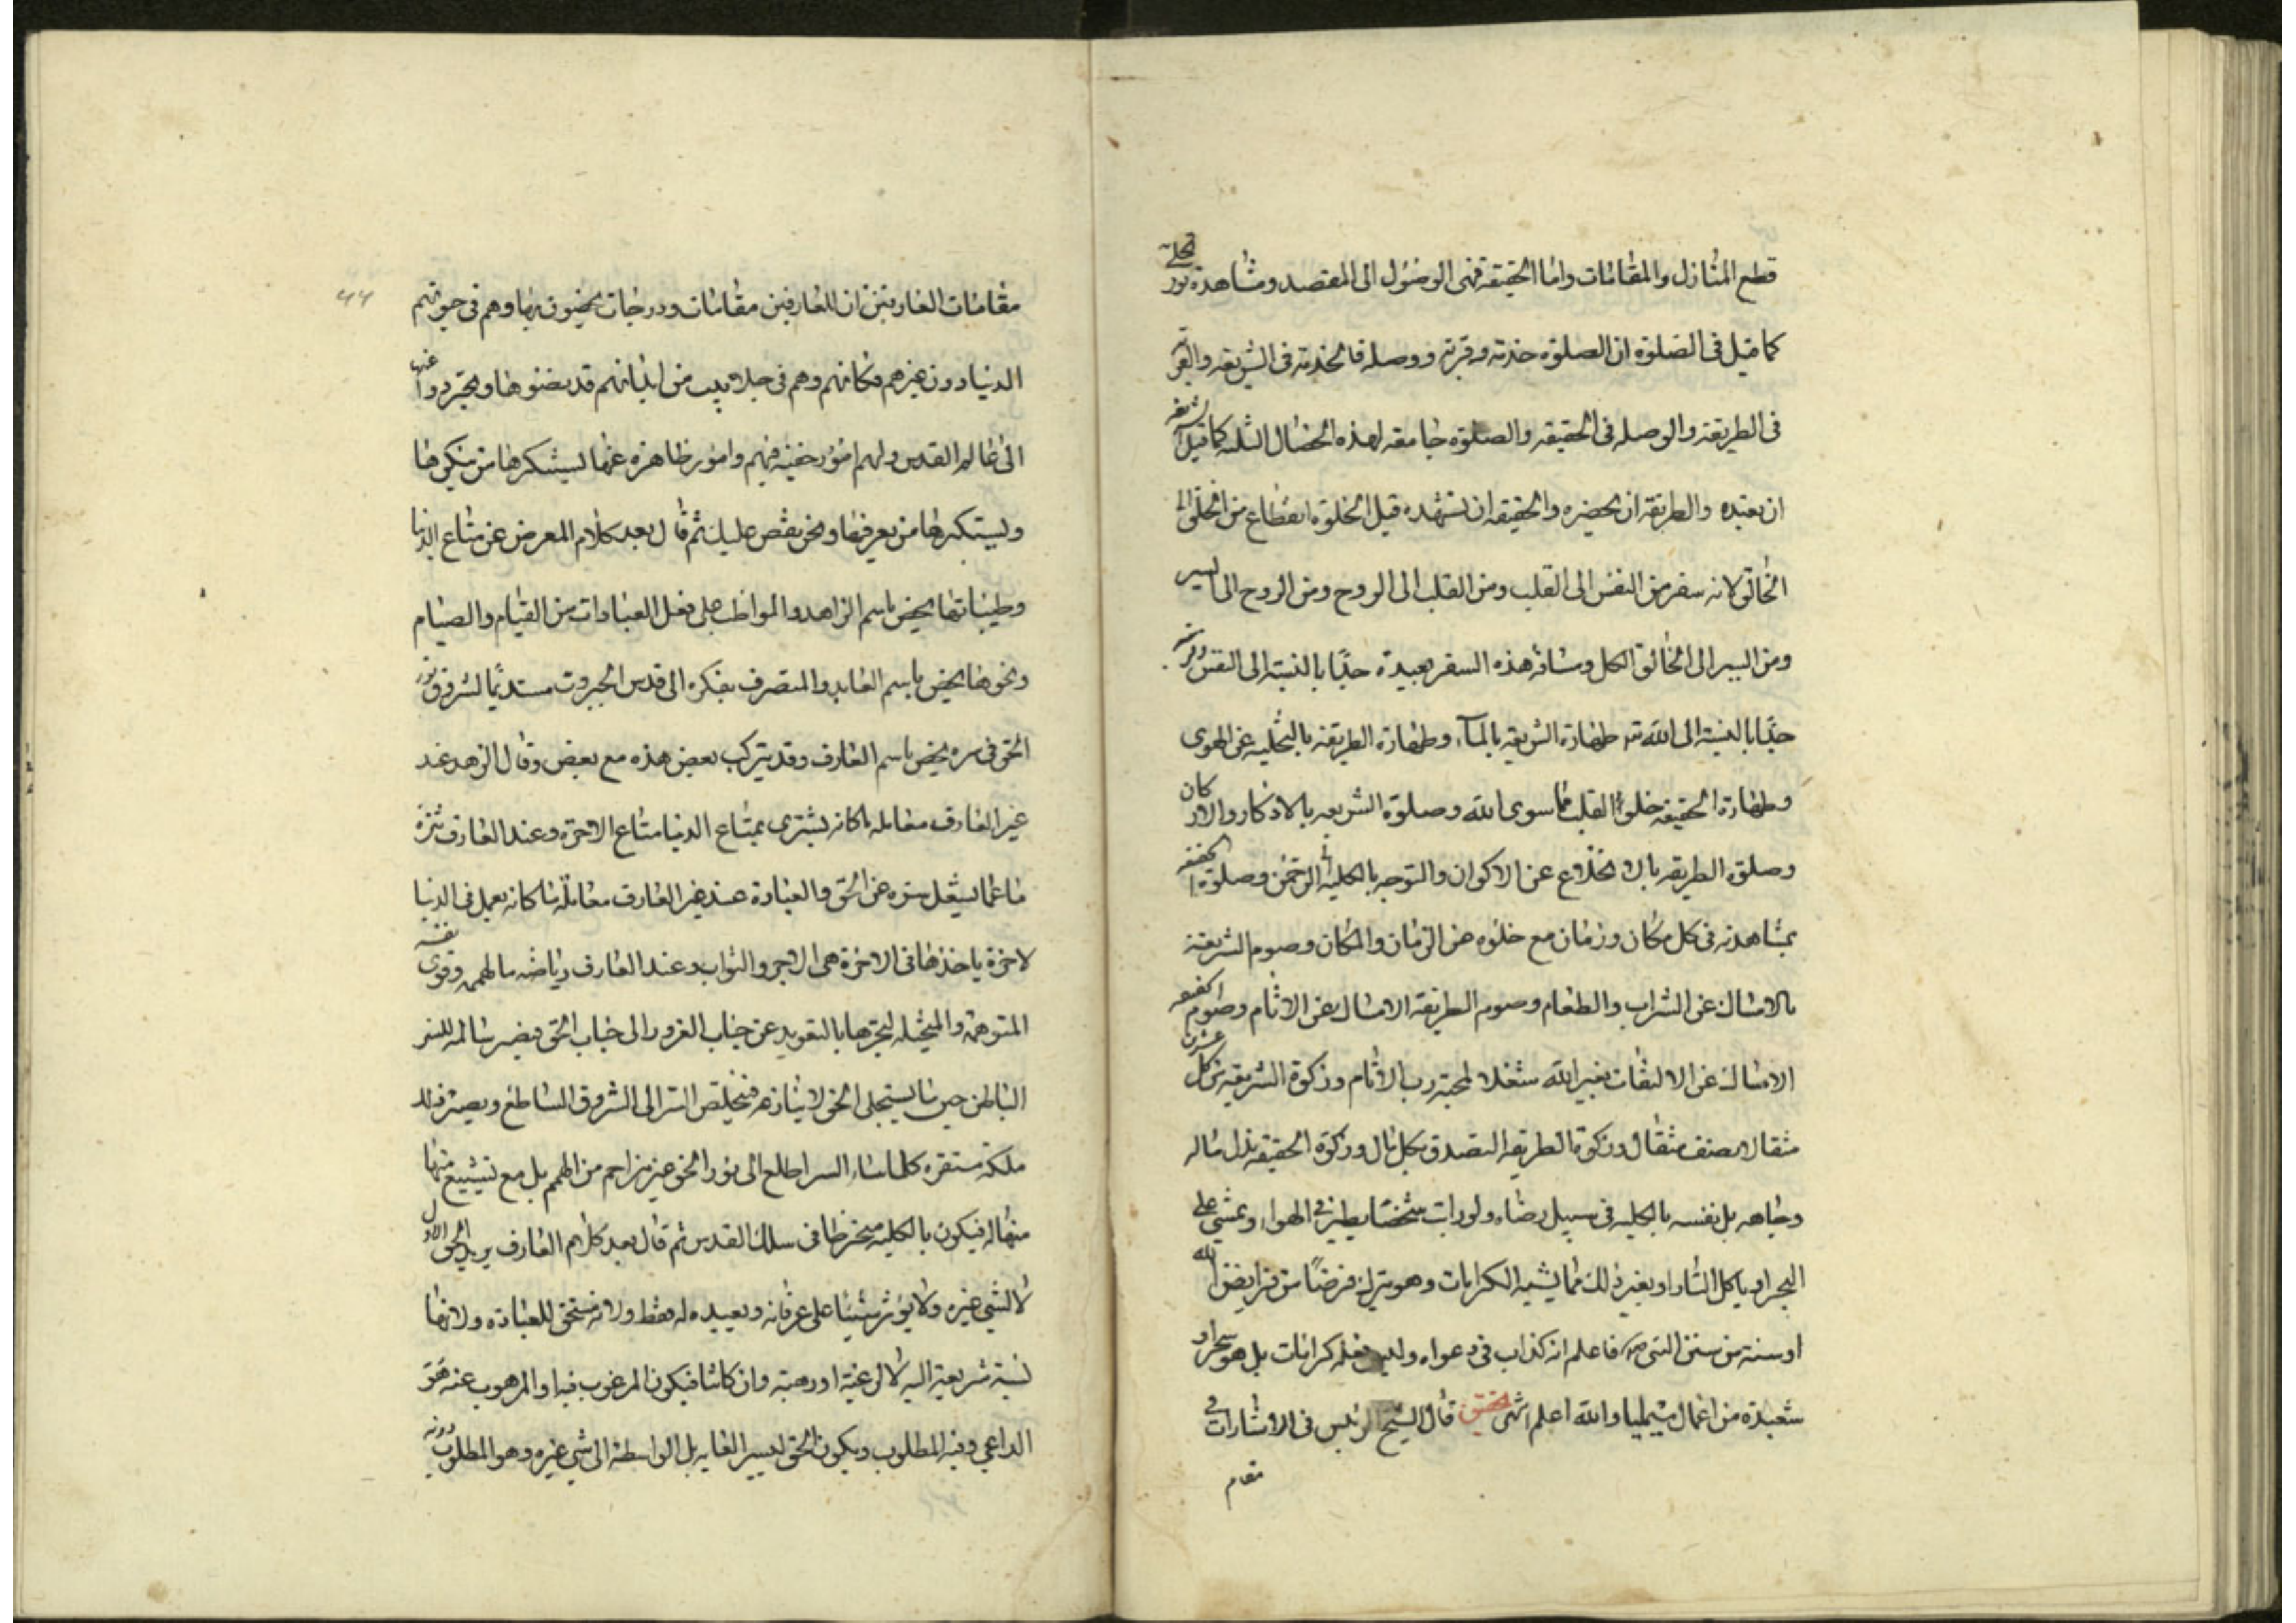 قطع المنازل والمقامات واما الحقيقه فهى الوصول الى المقصد ومشاهدة نور تجلى
كما قيل فى الصلوة ان الصلوة خدمة وقربة ووصلة فالخدمة فى الشريعه والقربة
فى الطريقة والوصله فى الحقيقه والصلوة جامعه لهذه الخصال الثلثه كما قيل الشريعه
ان تعبده والطريقة ان تحضره والحقيقه ان تشهده قيل الخلوة انقطاع من الخلق الى
الخالق لانه سفر من النفس الى القلب ومن القلب الى الروح ومن الروح الى السر
ومن السر الى الخالق الكل ومسافة هذه السفر بعيدة جدًا بالنسبة الى النفس وقريبة
جدًا بالنسبة الى الله تع طهارة الشريعه بالماء وطهارة الطريقة بالتخليه عن الهوى
وطهارة الحقيقه خلو القلب عما سوى الله وصلوة الشريعه بالاذكار والاركان
وصلوة الطريقه بالانخلاع عن الاكوان والتوجه بالكليه الى الرحمن وصلوة الحقيقه
بمشاهدته فى كل مكان وزمان مع خلوه عن الزمان والمكان وصوم الشريعة
بالامساك عن الشراب والطعام وصوم الطريقة الامساك عن الاثام وصوم الحقيقه
الامساك عن الالتفات بغير الله شغلا لمحبة رب الانام وزكوة الشريعه من كل عشرين
مثقالا نصف مثقال وزكوة الطريقه التصدق بكل مال وزكوة الحقيقه بذل ماله
وجاهه بل نفسه بالكليه فى سبيل رضاه ولو رايت شخصًا يطير فى الهواء ويمشي على
البحر او ياكل النار او بغير ذلك مما يشبه الكرامات وهو يترك فرضًا من فرايض الله
او سنة من سنن النبى فاعلم انه كذاب فى دعواه وليس فعله كرامات بل هو سحر او
شعبذة من اعمال سيميا والله اعلم انتهى تحقيق قال الشيخ الرئيس فى الاشارات فى
مقام
۴۴
مقامات العارفين ان للعارفين مقامات ودرجات يخصون بها وهم فى حيوتهم
الدنيا دون غيرهم فكانهم وهم فى جلابيب من ابدانهم قد نضوها وتجردوا عنها
الى عالم القدس ولهم امور خفية فيهم وامور ظاهرة عنهم يستنكرها من ينكرها
ويستكبرها من يعرفها ونحن نقص عليك ثم قال بعد كلام المعرض عن متاع الدنيا
وطيباتها يخص باسم الزاهد والمواظب على فعل العبادات من القيام والصيام
ونحوها يخص باسم العابد والمتصرف بفكره الى قدس الجبروت مستديمًا لشروق نور
الحق فى سره يخص باسم العارف وقد يتركب بعض هذه مع بعض وقال الزهد عند
غير العارف معاملة ما كانه يشترى بمتاع الدنيا متاع الاخرة وعند العارف تنزه
ما عما يشغل سره عن الحق والعبادة عند غير العارف معاملة ما كانه يعمل فى الدنيا
لاجرة ياخذها فى الاخرة هى الاجر والثواب وعند العارف رياضة ما لهممه وقوى نفسه
المتوهمة والمتخيله ليجرها بالتعويد عن جناب الغرور الى جناب الحق فيصير سالمه للسر
الباطن حين ما يستجلى الحق لا ينازعه فيخلص السر الى الشروق الساطع ويصير ذلك
ملكة مستقره كلما شاء السر اطلع الى نور الحق غير مزاحم من الهمم بل مع تشييع منها
منها له فيكون بالكليه منخرطا فى سلك القدس ثم قال بعد كلام العارف يريد الحق الاول
لا لشيء غيره ولا يؤثر شيئا على عرفانه وتعبده له فقط ولانه مستحق للعبادة ولانها
نسبة شريفة اليه لا لرغبة او رهبة وان كانتا فيكون المرغوب فيه او المرهوب عنه هو
الداعي وفيه المطلوب ويكون الحق ليس الغايه بل الواسطة الى شي غيره وهو المطلوب دونه